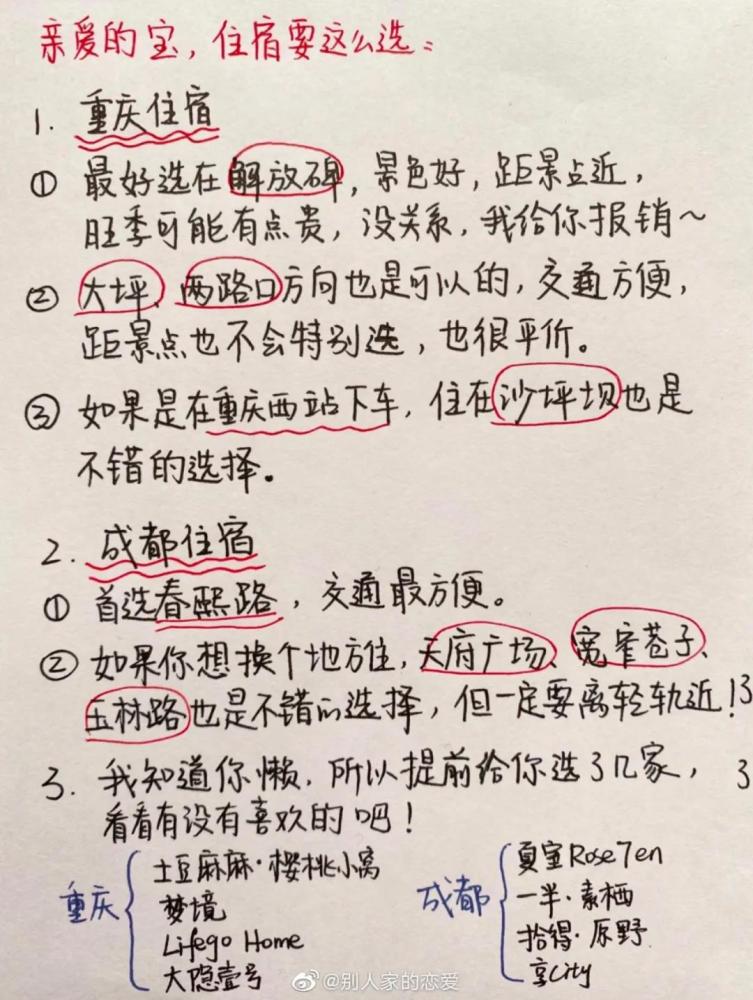 亲爱的宝，住宿要这么选：
1. 重庆住宿
① 最好选在解放碑，景色好，距景点近，
旺季可能有点贵，没关系，我给你报销～
② 大坪、两路口方向也是可以的，交通方便，
距景点也不会特别选，也很平价。
③ 如果是在重庆西站下车，住在沙坪坝也是
不错的选择。
2. 成都住宿
① 首选春熙路，交通最方便。
② 如果你想换个地方住，天府广场、宽窄巷子、
玉林路也是不错的选择，但一定要离轻轨近！
3. 我知道你懒，所以提前给你选了几家，
看看有没有喜欢的吧！
重庆
土豆麻麻·樱桃小窝
梦境
Lifego Home
大隐壹号
成都
夏宝Rose7en
一半·素栖
拾得·原野
享City
@别人家的恋爱